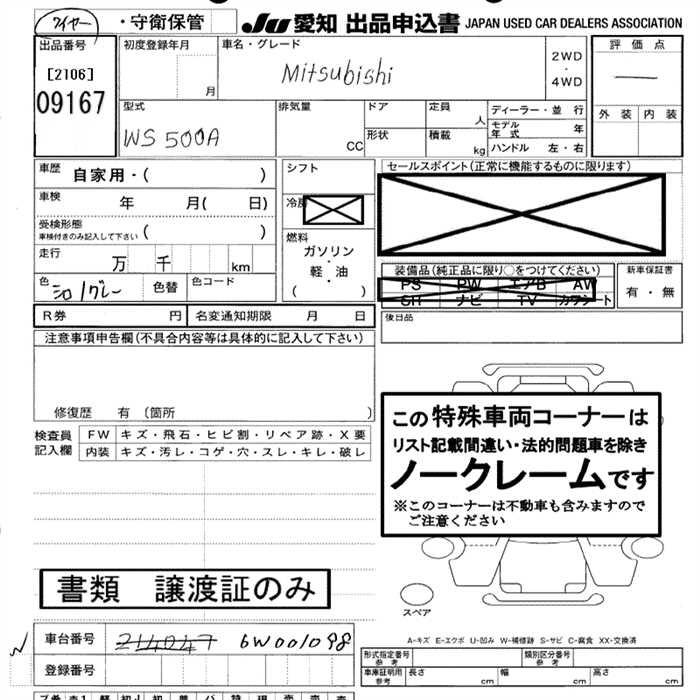 ワイヤー ・守衛保管 JU 愛知 出品申込書 JAPAN USED CAR DEALERS ASSOCIATION
出品番号 初度登録年月 車名・グレード 評価点
[2106] 月 Mitsubishi 2WD ・ 4WD
09167 外装 内装
型式 排気量 ドア 定員 ディーラー・並行
WS 500A CC 形状 人 モデル年式 年
積載 kg ハンドル 左・右
車歴 自家用・( ) シフト セールスポイント(正常に機能するものに限ります)
車検 年 月( 日)
受検形態
車検付きのみ記入して下さい ( ) 燃料
走行 万 千 km ガソリン
軽・油
( )
装備品(純正品に限り○をつけてください) 新車保証書
色 シロ/グレー 色替 色コード PS PW エアB AW 有・無
SR ナビ TV カワシート
R券 円 名変通知期限 月 日 後日品
注意事項申告欄(不具合内容等は具体的に記入して下さい)
修復歴 有 (箇所 )
この特殊車両コーナーは
リスト記載間違い・法的問題車を除き
ノークレームです
※このコーナーは不動車も含みますので
ご注意ください
検査員 FW キズ・飛石・ヒビ割・リペア跡・X要
記入欄 内装 キズ・汚レ・コゲ・穴・スレ・キレ・破レ
書類 譲渡証のみ
スペア
車台番号 6W001098
A-キズ E-エクボ U-凹み W-補修跡 S-サビ C-腐食 XX-交換済
登録番号
形式指定番号 参考 類別区分番号 参考
車庫証明用 参考 長さ cm 幅 cm 高さ cm